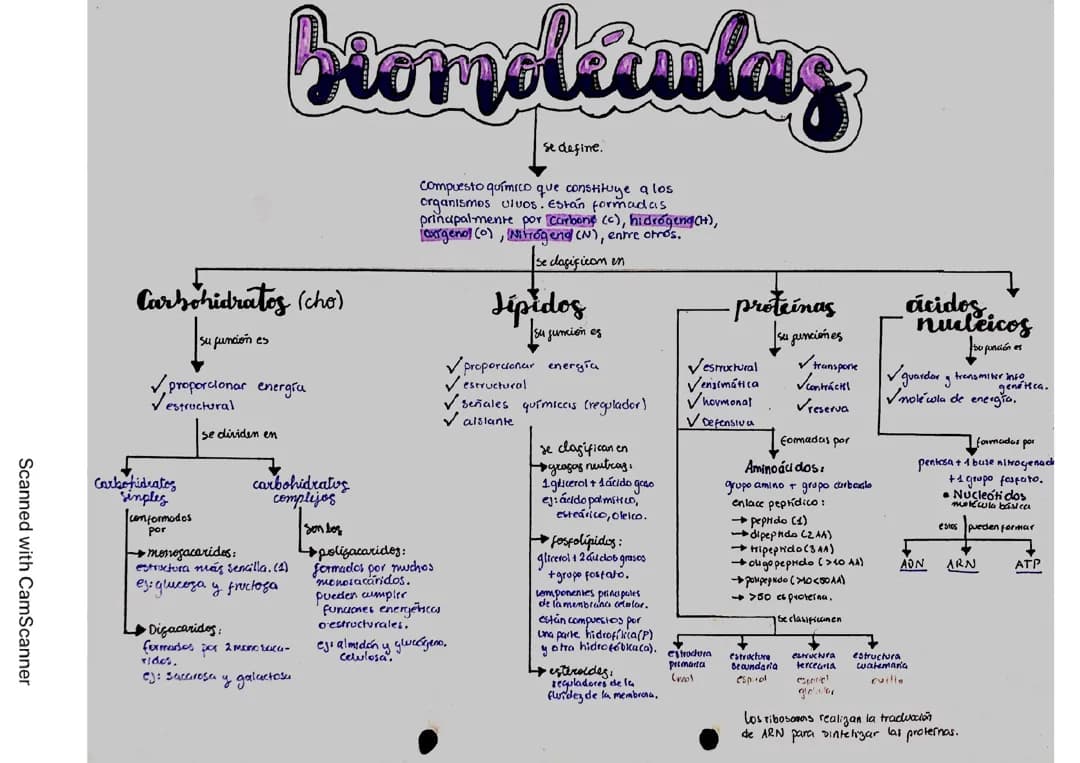 biomoléculas
se define.
compuesto químico que constituye a los
organismos vivos. Están formadas
principalmente por Carbono (C), hidrógeno (H),
oxígeno (O), Nitrógeno (N), entre otros.
se clasifican en
Carbohidratos (cho)
su función es
✓ proporcionar energía
✓ estructural
se dividen en
Carbohidratos
simples
conformados
por
→ monosacaridos:
estructura más sencilla. (1)
ej: glucosa y fructosa
→ Disacaridos:
formados por 2 monosaca-
ridos.
ej: sacarosa y galactosa
carbohidratos
complejos
son los
→ polisacaridos:
formados por muchos
monosacáridos.
pueden cumplir
funciones energéticas
o estructurales.
ej: almidón y glucógeno.
celulosa.
lípidos
su función es
✓ proporcionar energía
✓ estructural
✓ señales químicas (regulador)
✓ aislante
se clasifican en
→ grasas neutras:
1 glicerol + 1 ácido graso
ej: ácido palmítico,
esteárico, oleico.
→ fosfolípidos:
glicerol + 2 ácidos grasos
+ grupo fosfato.
componentes principales
de la membrana celular.
están compuestos por
una parte hidrofílica (P)
y otra hidrofóbica (C).
→ esteroides:
reguladores de la
fluidez de la membrana.
proteínas
su funciones
✓ estructural
✓ enzimática
✓ hormonal
✓ Defensiva
✓ transporte
✓ contráctil
✓ reserva
formadas por
Aminoácidos:
grupo amino + grupo carboxilo
enlace peptídico:
→ peptido (1)
→ dipeptido (2 AA)
→ tripeptido (3 AA)
→ oligopeptido (>10 AA)
→ polipeptido (>10<50 AA)
→ >50 es proteína.
se clasifican en
estructura
primaria
lineal
estructura
secundaria
espiral
estructura
terciaria
espiral
globular
estructura
cuaternaria
ovillo
Los ribosomas realizan la traducción
de ARN para sintetizar las proteínas.
ácidos
nucleicos
su función es
✓ guardar y transmitir info
genética.
✓ molécula de energía.
formados por
pentosa + 1 base nitrogenada
+ 1 grupo fosfato.
• Nucleótidos
molécula básica
estos pueden formar
ADN
ARN
ATP
Scanned with CamScanner